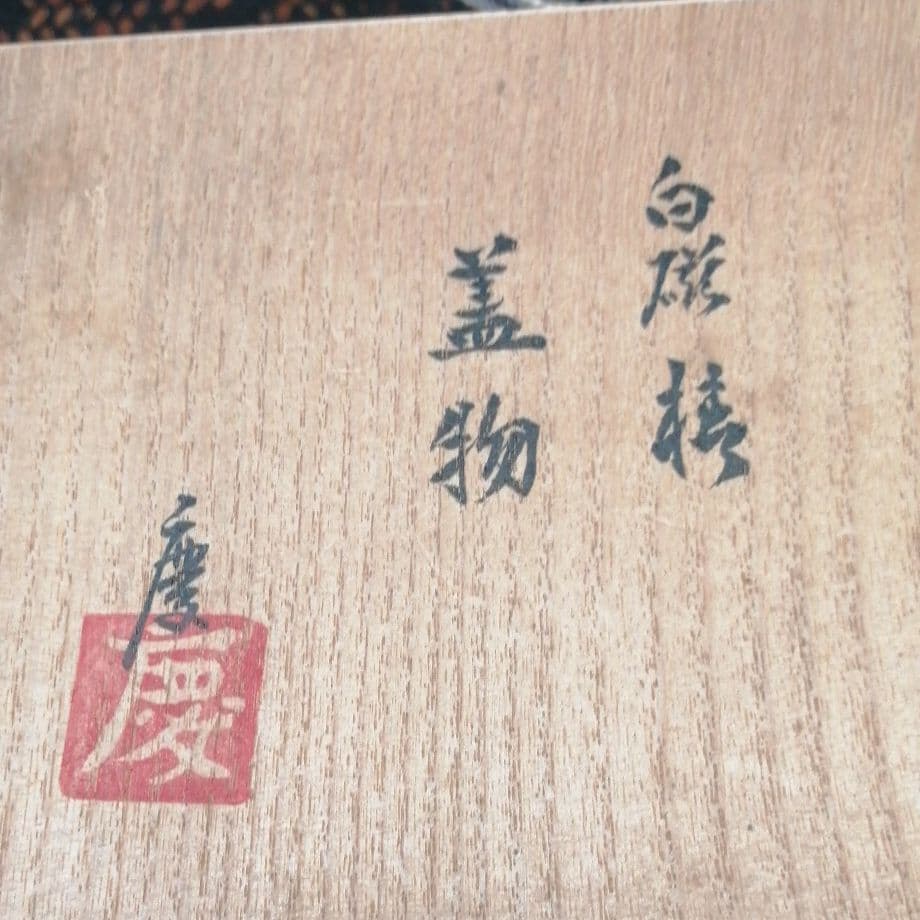 白磁椿
蓋物
慶
慶